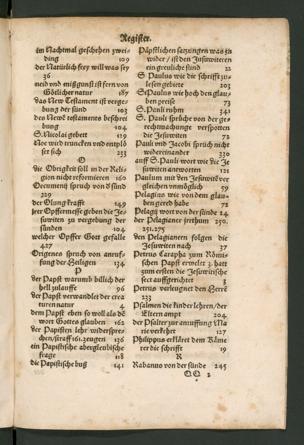 Register.
im Nachtmal geschehen zwei-
ding 109
der Natürlich frey will was sey
36
neid vnd mißgunst ist fern von
Götlicher natur 187
das New Testament ist verge-
bung der sünd 103
des New testamentes beschrei
bung 104
S. Nicolai gebett 119
Noe wird truncken vnd entplö
set sich 233
O
die Obrigkeit soll in der Reli-
gion nicht reformieren 160
Ocumenij spruch von d sünd
219
der Ölung krafft 149
jrer Opffermesse geben die Je-
suiten zu vergebung der
sünden 104
welcher Opffer Gott gefalle
427
Origenes spruch von anruf-
fung der Heiligen 134
P
der Papst warumb billich der
hell zulauffe 96
der Papst verwandler der crea
turen natur 4
dem Papst eben so woll als dē
wort Gottes glauben 162
der Papisten lehr widerspre-
chen, straff 161. zeugen 136
ein Papistische abergleubische
frage 118
die Papistische buß 141
Päpstlichen satzungen was zu
wider / ist den Jesuiteren
ein greuliche sünd 22
S. Paulus wie die schrifft zu-
lesen gebiete 203
S. Paulus wie hoch den glau-
ben preise 73
S. Pauli ruhm 341
S. Pauli sprüche von der ge-
rechmachunge verspotten
die Jesuiten 72
Pauli vnd Jacobi sprüch nicht
widereinander 330
auff S. Pauli wort wie die Je
suiten antworten 121
Paulum mit den Jesuiten ver
gleichen vnmöglich 59
Pelagius wie von dem glau-
ben gered habe 72
Pelagij wort von der sünde 24
der Pelagianer jrrthum 250.
251.275
den Pelagianern folgen die
Jesuiten nach 37
Petrus Carapha zum Römi-
schen Papst erwelet 3. hatt
zum ersten die Jesuwitische
sect auffgerichtet 8
Petrus verleugnet den Herrē
233
Psalmen die kinder lehren / der
Eltern ampt 204
der Psalter zu anruffung Ma
rie verkehrt 127
Philippus erkläret dem Käme
rer die schrifft 19
R
Rabanus von der sünde 245
QQ 2